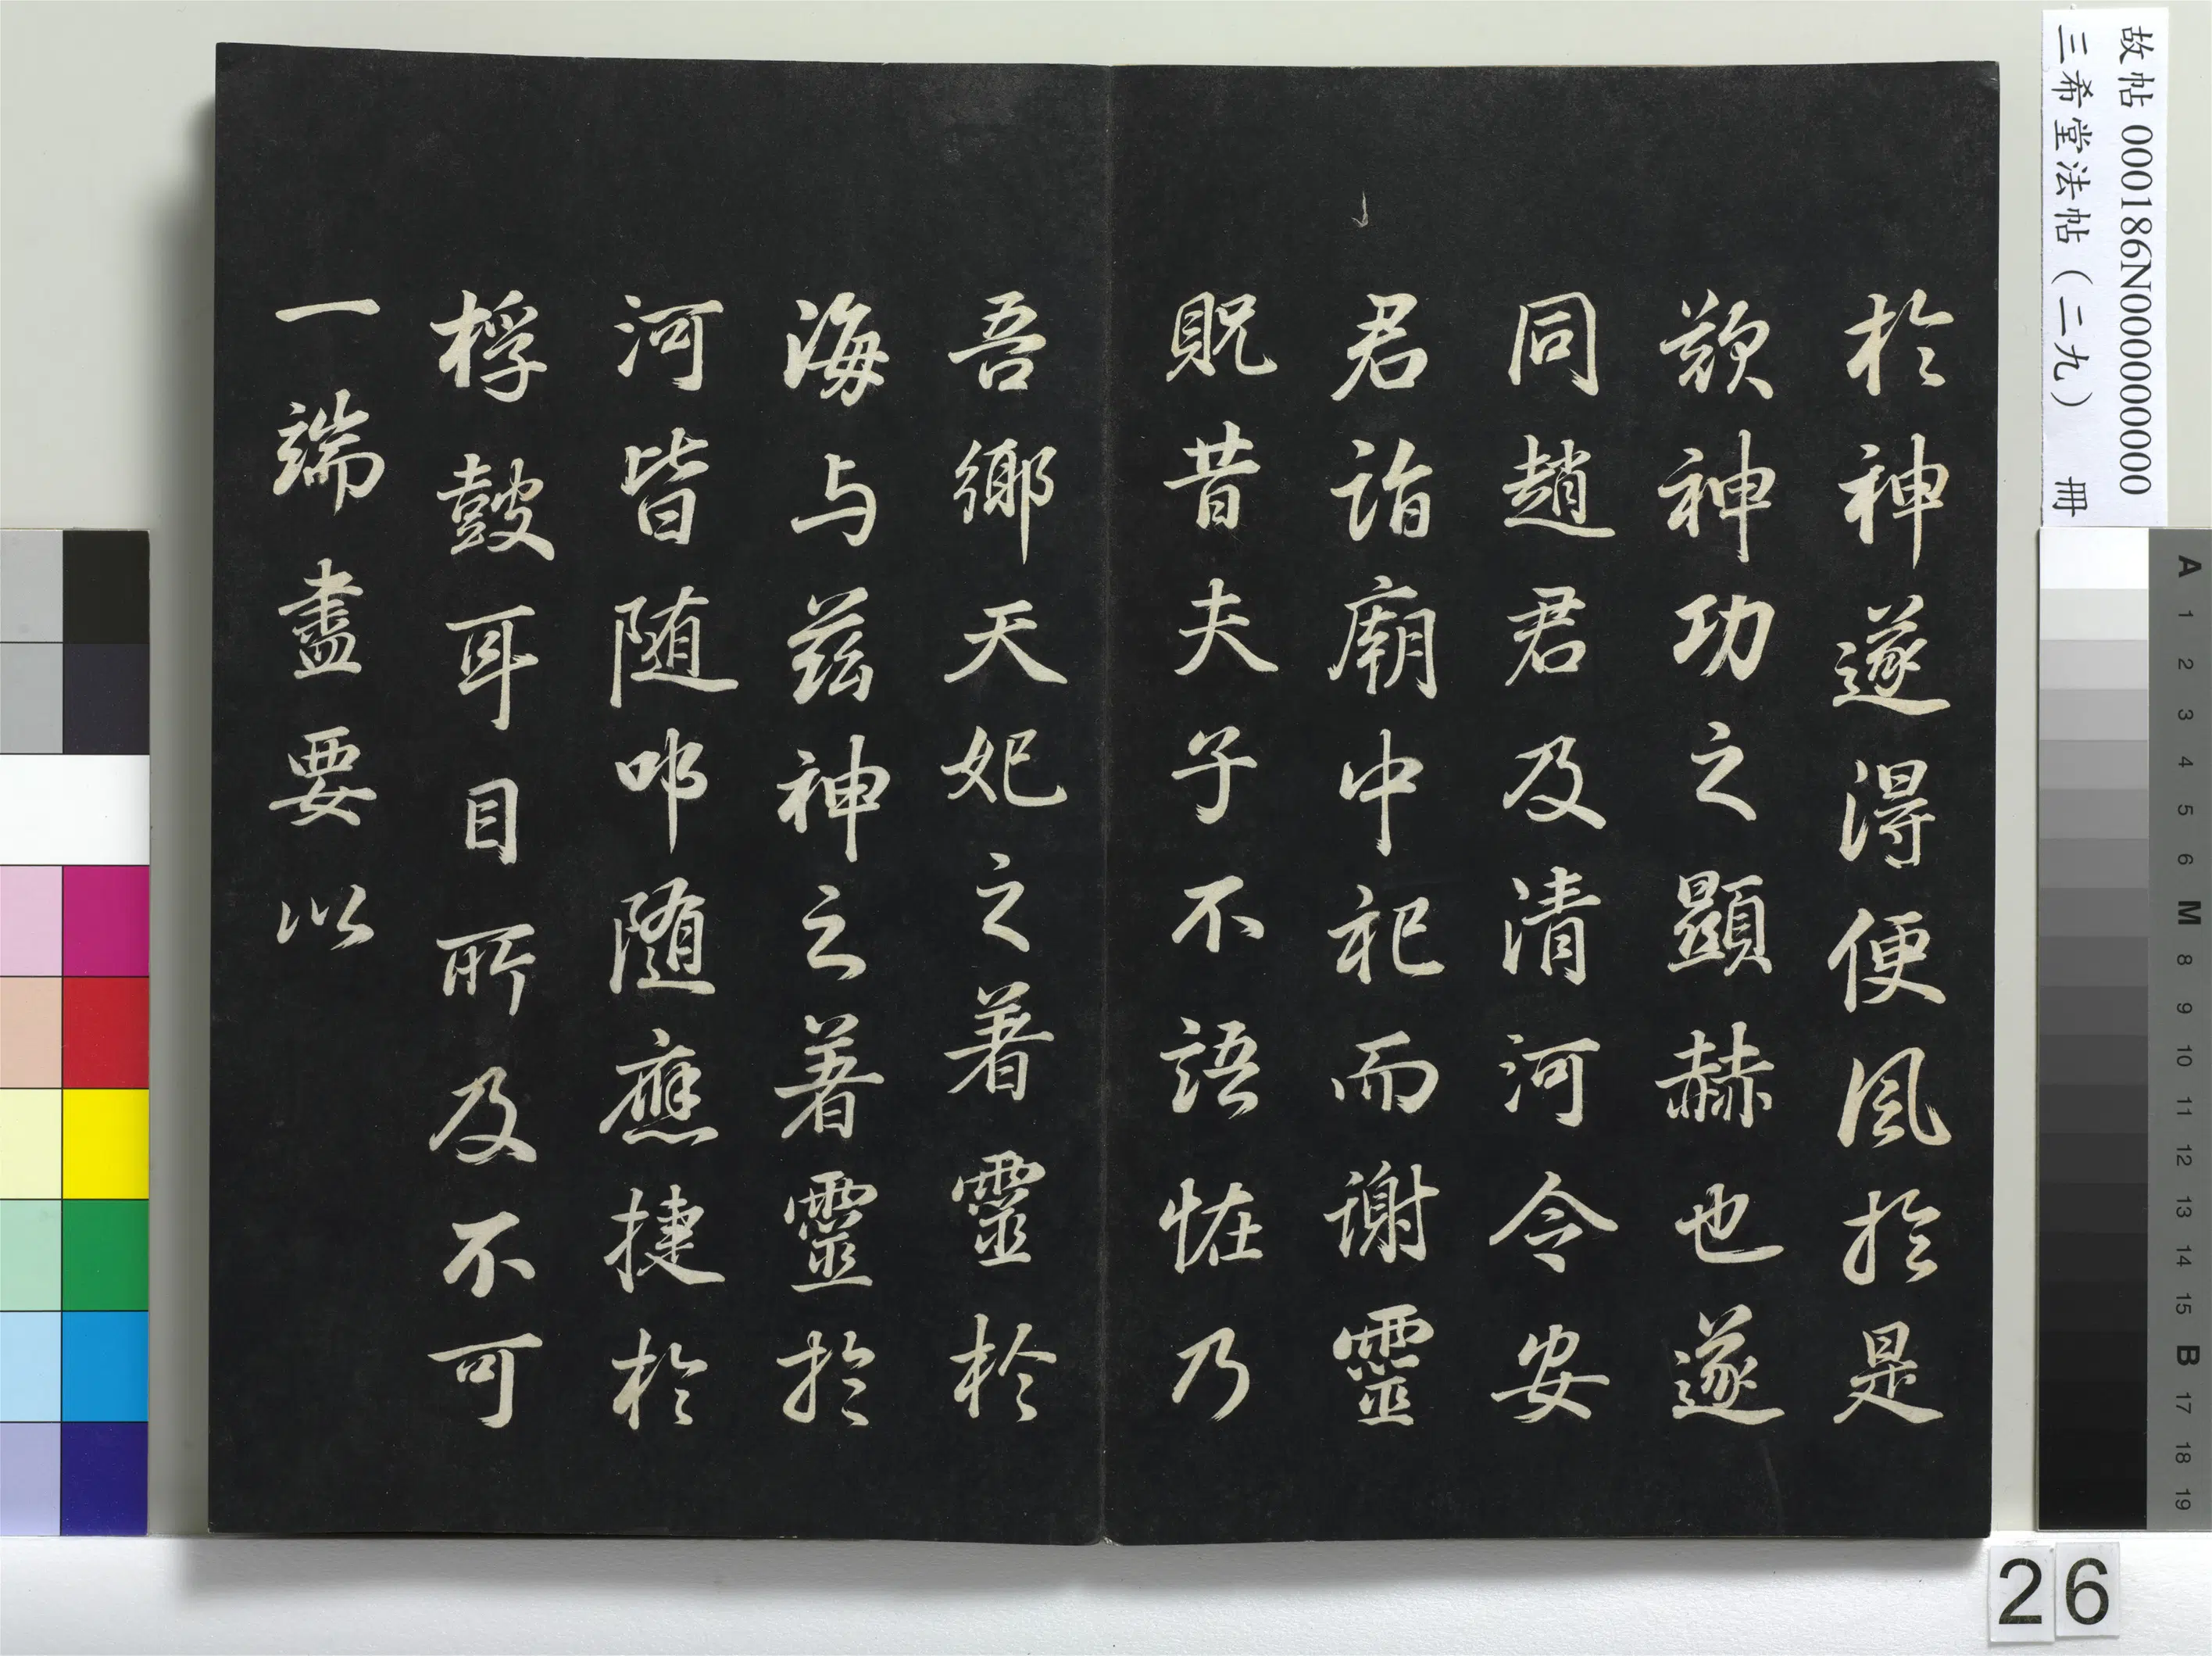 於神遂得便風於是
歎神功之顯赫也遂
同趙君及清河令安
君詣廟中祀而謝靈
貺昔夫子不語恠乃
吾鄉天妃之著靈於
海与茲神之著靈於
河皆随叩隨應捷於
桴鼓耳目所及不可
一端盡要以
故帖 000186N000000000
三希堂法帖（二九） 冊
A 1 2 3 4 5 6 M 8 9 10 11 12 13 14 15 B 17 18 19
26